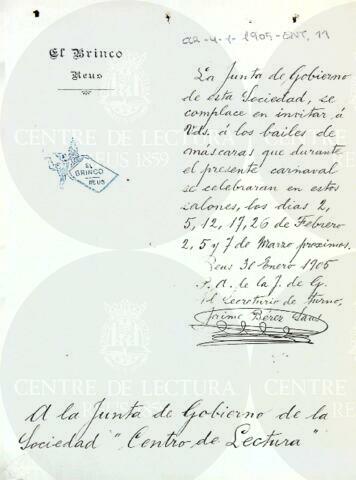 CR-4-1-1905-ENT, 11
El Brinco
Reus
La Junta de Gobierno
de esta Sociedad, se
complace en invitar, á
Vds. á los bailes de
máscaras que durante
el presente carnaval
se celebraran en estos
salones, los dias 2,
5, 12, 17, 26 de Febrero
2, 5 y 7 de Marzo proximos.
Reus 30 Enero 1905
P. A. de la J. de G.
El Secretario de turno,
Jaime
EL
BRINCO
REUS
A la Junta de Gobierno de la
Sociedad "Centro de Lectura"
CENTRE DE LECTURA
REUS 1859
CENTRE DE LECTURA